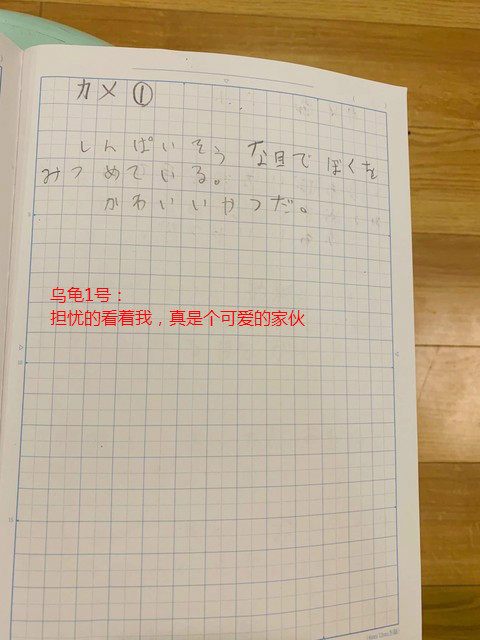 カメ ①
しんぱいそう な目で ぼくを
みつめている。
かわいいやつだ。
乌龟1号：
担忧的看着我，真是个可爱的家伙